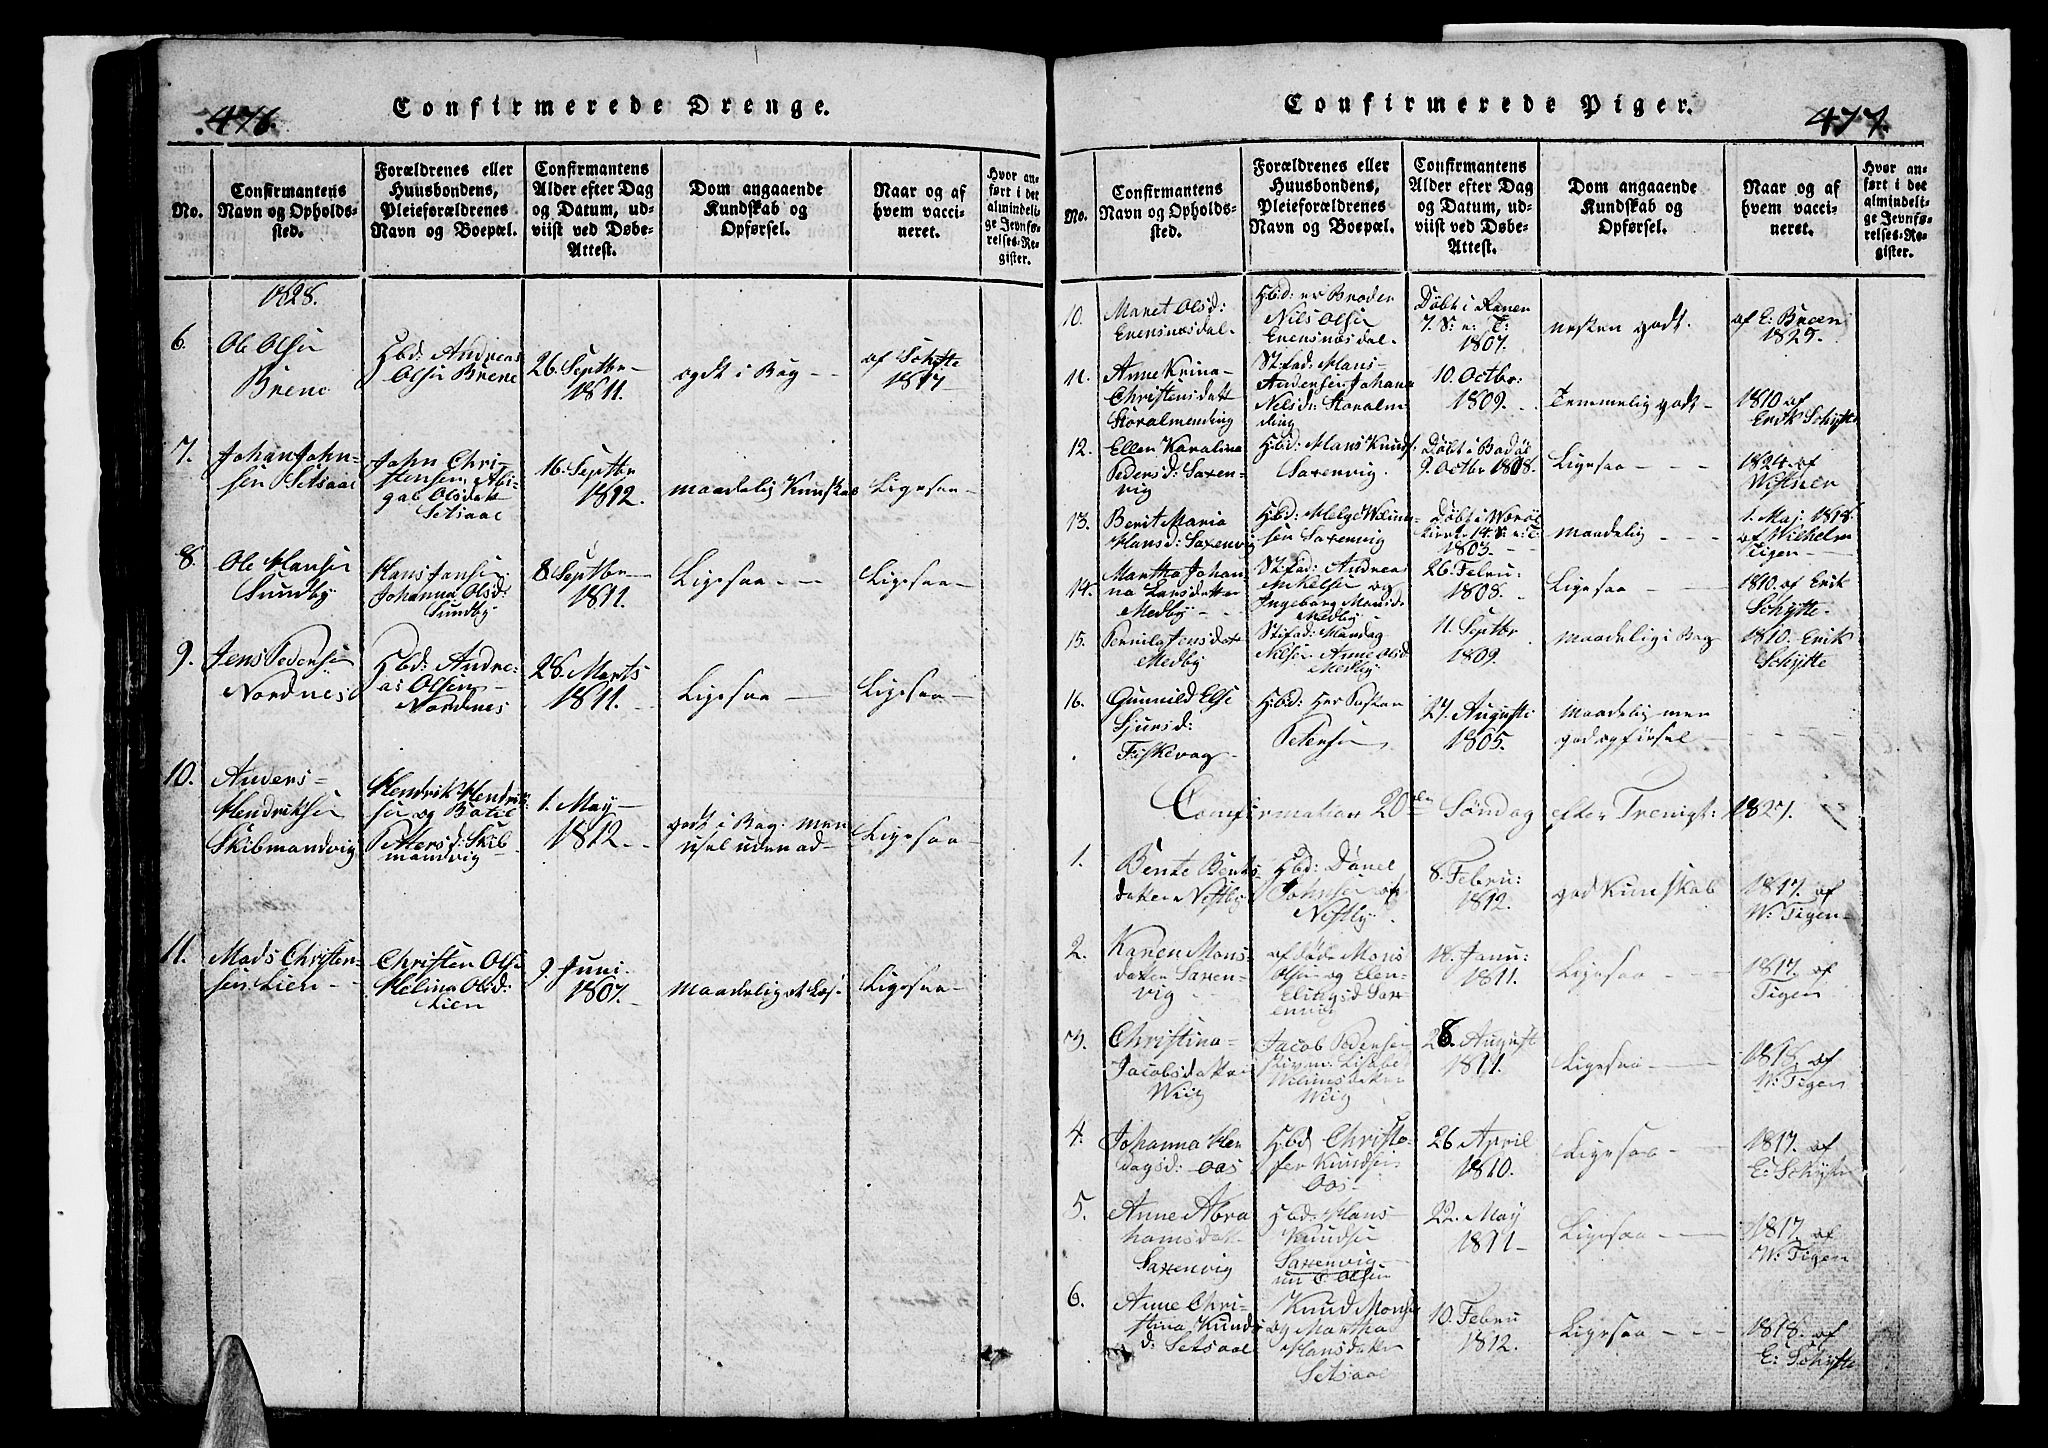 476.
Confirmerede Drenge.
No.
Confirmantens
Navn og Opholds-
sted.
Forældrenes eller
Huusbondens,
Pleieforældrenes
Navn og Boepæl.
Confirmantens
Alder efter Dag
og Datum, ud-
viist ved Døbe-
Attest.
Dom angaaende
Kundskab og
Opførsel.
Naar og af
hvem vacci-
neret.
Hvor an-
ført i det
almindeli-
ge Jevnfø-
relses-Re-
gister.
1828.
6.
Ole Olsen
Brene
Hbd: Andreas
Olsen Brene
26 Septbr
1811.
godt i Bog
af Schytte
1817
7.
Johan John-
sen Setsaae
John Chri-
stensen, Abi-
gal Olsdatt
Setsaae
16. Septbr
1812.
maadelig Kunskab
Ligesaa
8.
Ole Hansen
Sundby
Hans Jansen
Johanna Olsd:
Sundby
8 Septbr
1811.
Ligesaa
Ligesaa
9.
Jens Pedersen
Nordnes
Hbd: Andre-
as Olsen
Nordnes
28. Marts
1811.
Ligesaa
Ligesaa
10.
Anders
Hendriksen
Skibmandvig
Hendrik Hendrik-
sen og
Petersd: Skib-
mandvig
1. May
1812
godt i Bog: men
Ligesaa
11.
Mads Christen-
sen Lien
Christen Olsen
Helina Olsd:
Lien
9. Juni
1807.
maadelig
Ligesaa
Confirmerede Piger.
477.
No.
Confirmantens
Navn og Opholds-
sted.
Forældrenes eller
Huusbondens,
Pleieforældrenes
Navn og Boepæl.
Confirmantens
Alder efter Dag
og Datum, ud-
viist ved Døbe-
Attest.
Dom angaaende
Kundskab og
Opførsel.
Naar og af
hvem vacci-
neret.
Hvor an-
ført i det
almindeli-
ge Jevnfø-
relses-Re-
gister.
10.
Maret Olsd:
Evensnæsdal
Hbd: er Broder
Nils Olsen
Evensnæsdal
Døbt i Ranen
7. S: e: T:
1807.
nesten godt.
af E: Breen
1825.
11.
Anne Krina
Christensdatt
Storalmending
Stifad: Hans
Andersen, Johana
Nilsd: Storalmen
ding
10. Octbr:
1809.
Temmelig godt
1810 af
Erik Schytte
12.
Ellen Karalina
Pedersd: Saxen-
vig
Hbd: Hans Knuds:
Saxenvig.
Døbt i Bodøe
9. Octbr 1808.
Ligesaa
1824 af
13.
Berit Maria
Hansd: Saxenvig
Hbd: Helge
sen Saxenvig
Døbt i Værøe
Kirke 14. S: e: T:
1803
maadelig
1. Maj. 1818.
af Wilhelm
Tigen
14.
Martha Johan
na Larsdatter
Medby
Stifad: Andreas
og
Ingeborg Hansd:
Medby
26. Febru:
1808.
Ligesaa
1810. af Erik
Schytte.
15.
Pernila Jensdatt
Medby
Stifad:
Nilsen Anne Olsd
Medby
11. Septbr
1809.
maadelig i Bog
1810. Erik
Schytte
16.
Gunnild Else
Sjursd:
Fiskevog
Hbd: Her Pastor
Petersen
27. Augusti
1805.
maadelig men
god opførsel
Confirmation 20de Søndag efter Trenigt: 1827.
1.
Bente Bents-
datter Nestby
Hbd: Danel
Johnsen
Nestby
8. Febru:
1812.
god Kunskab
1817. af
W: Tigen
2.
Karen Mons-
datter Saxen-
vig
af døde Mons
Olsen og Elen
Saxenvig
18. Janu:
1811.
Ligesaa
1817. af
Tigen
3.
Christina
Jacobsdatter
Wiig
Jacob Pedersen
Wiig
28. August
1811.
Ligesaa
1818. af
W: Tigen
4.
Johanna Hen
dagsd: Oas
Hbd Christo-
fer Knudsen
Oas
26 April
1810.
Ligesaa
1817. af
E: Schytte
5.
Anne Abra
hamsdatt
Saxenvig
Hbd: Hans
Knudsen
Saxenvig
Olsen
22. May
1811
Ligesaa
1817. af
W: Tigen
6.
Anne Chri-
stina Knuds
d: Setsaae
Knud Monsen
og Martha
Hansdatter
Setsaae
10. Febru
1812.
Ligesaa
1818. af
E: Schytte